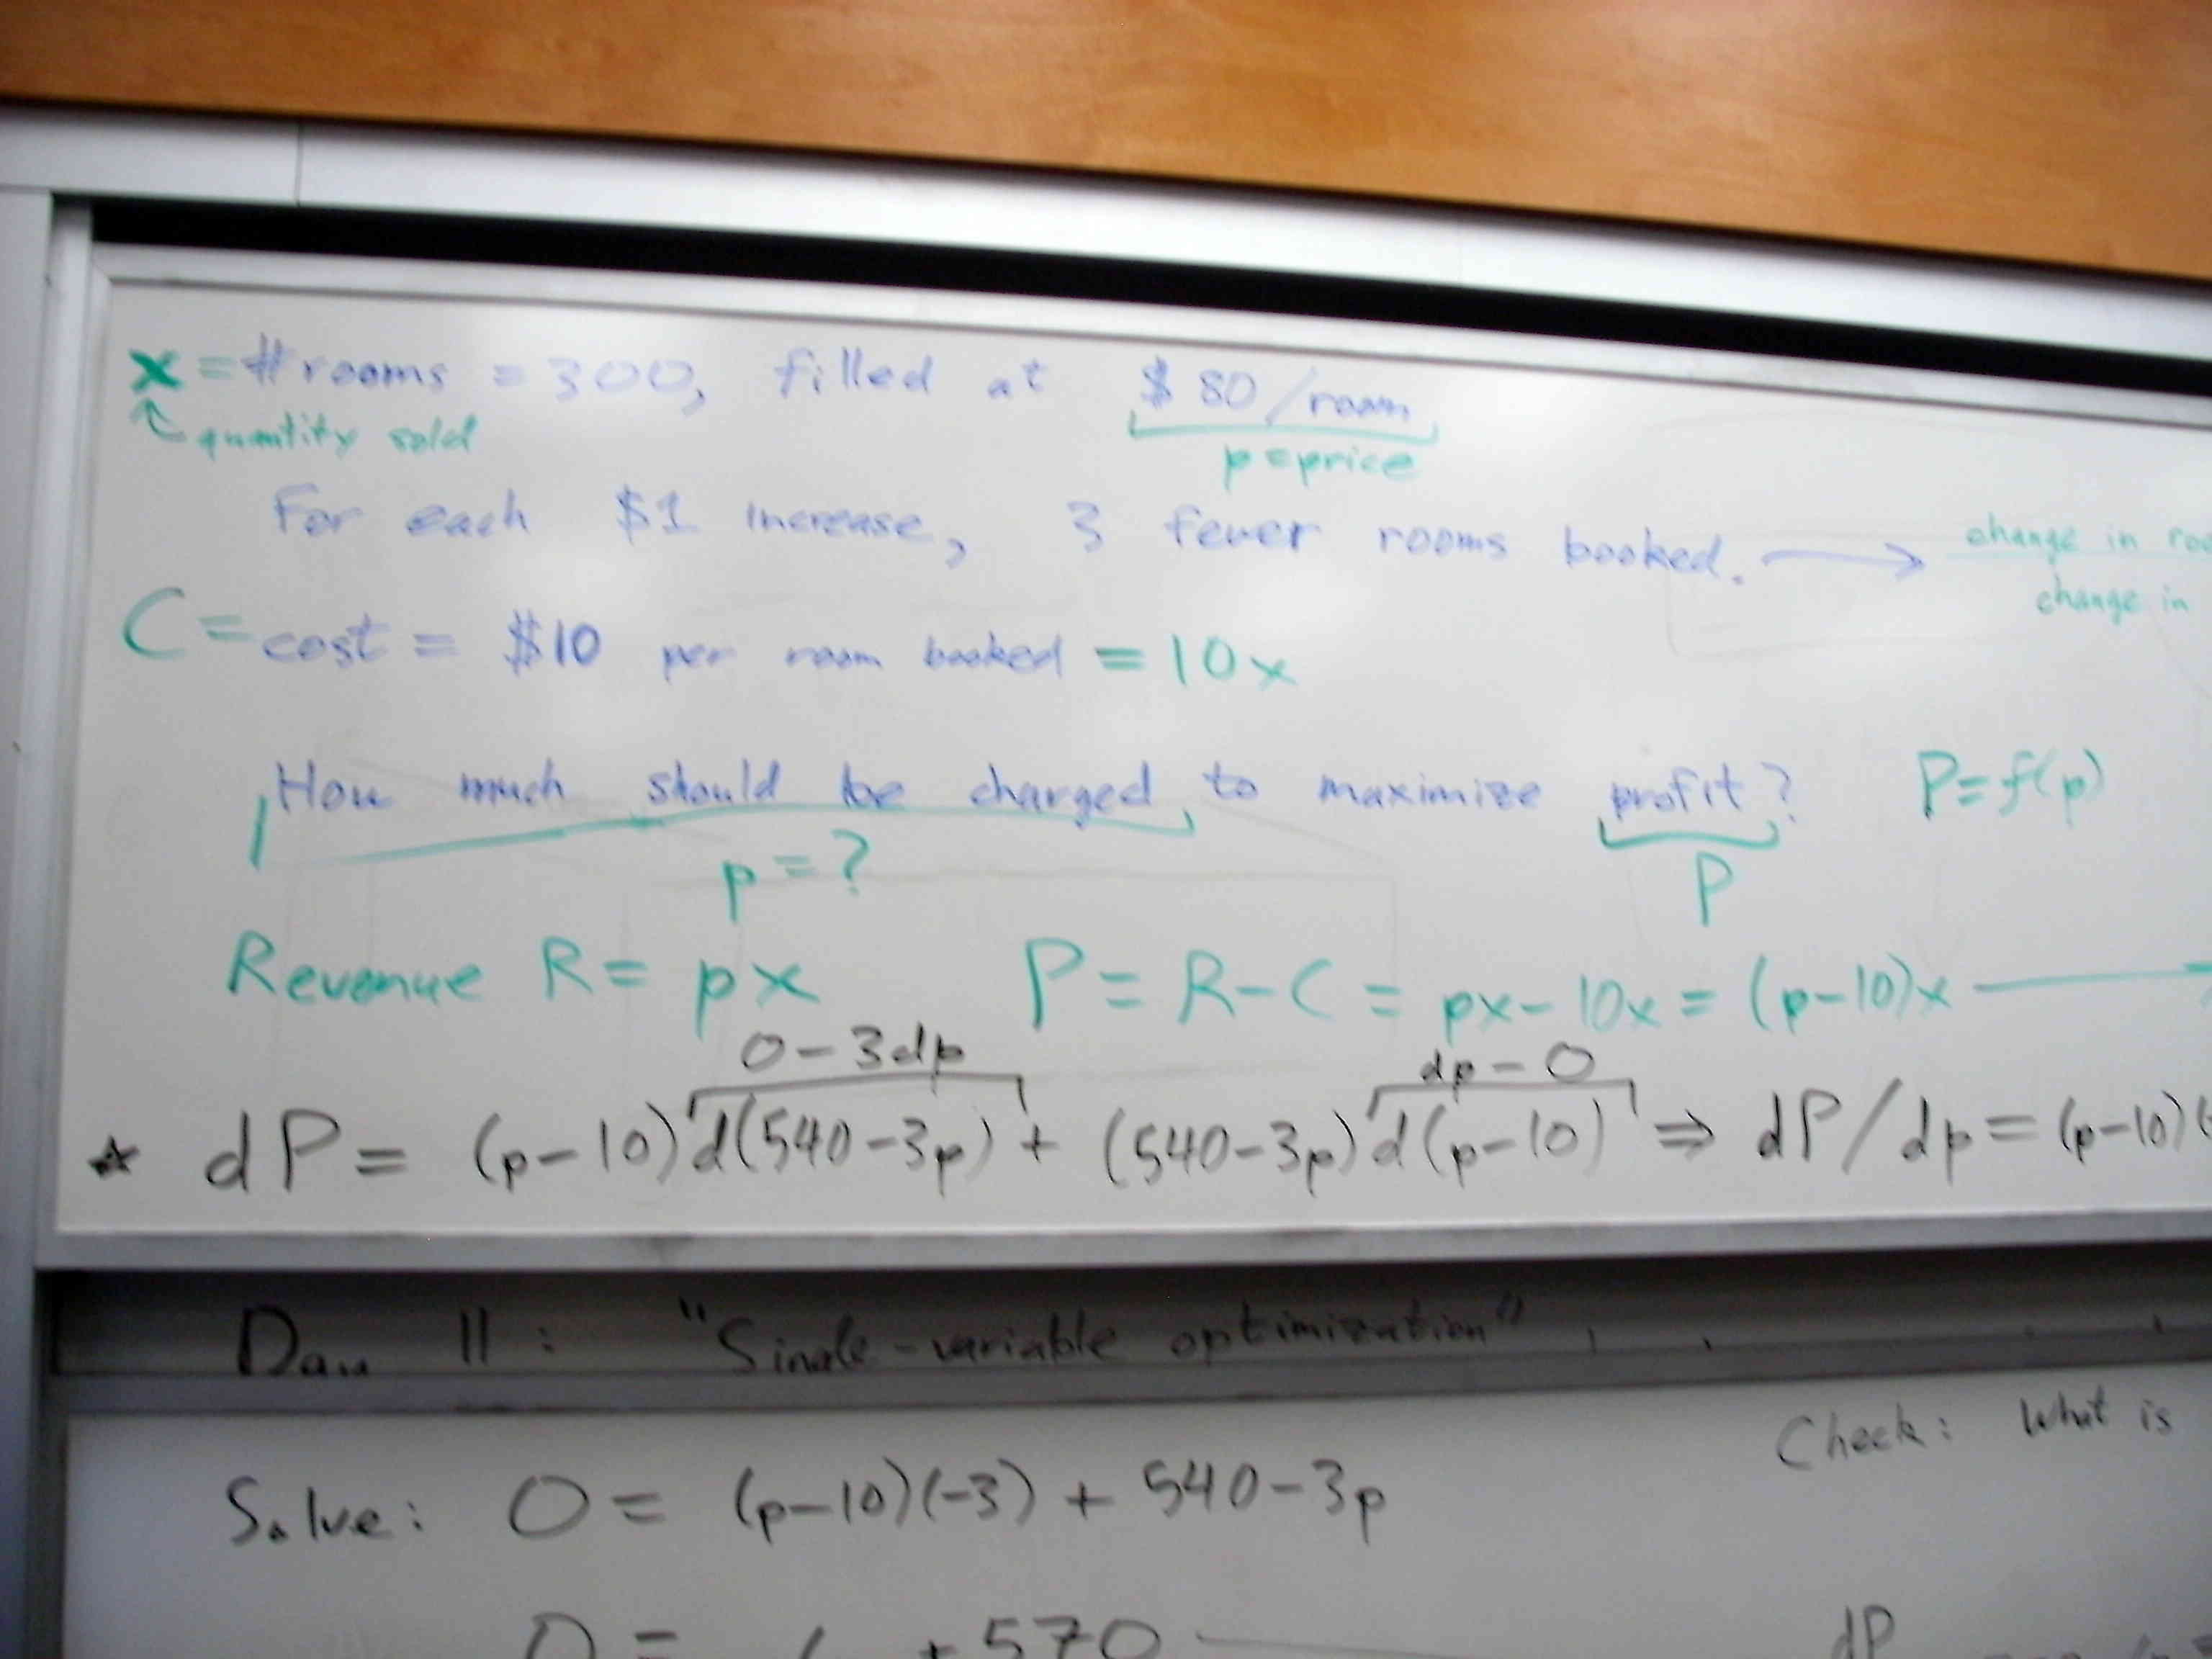 x = # rooms = 300, filled at $80/room
↑ quantity sold
p = price
For each $1 increase, 3 fewer rooms booked. → change in
change in
C = cost = $10 per room booked = 10x
How much should be charged to maximize profit? P = f(p)
p = ?
P
Revenue R = px P = R - C = px - 10x = (p-10)x →
0 - 3dp dp - 0
☆ dP = (p-10)d(540-3p) + (540-3p)d(p-10) ⇒ dP/dp = (p-10)(
Day 11: "Single-variable optimization"
Check: What is
Solve: 0 = (p-10)(-3) + 540-3p
0 = + 570
dP